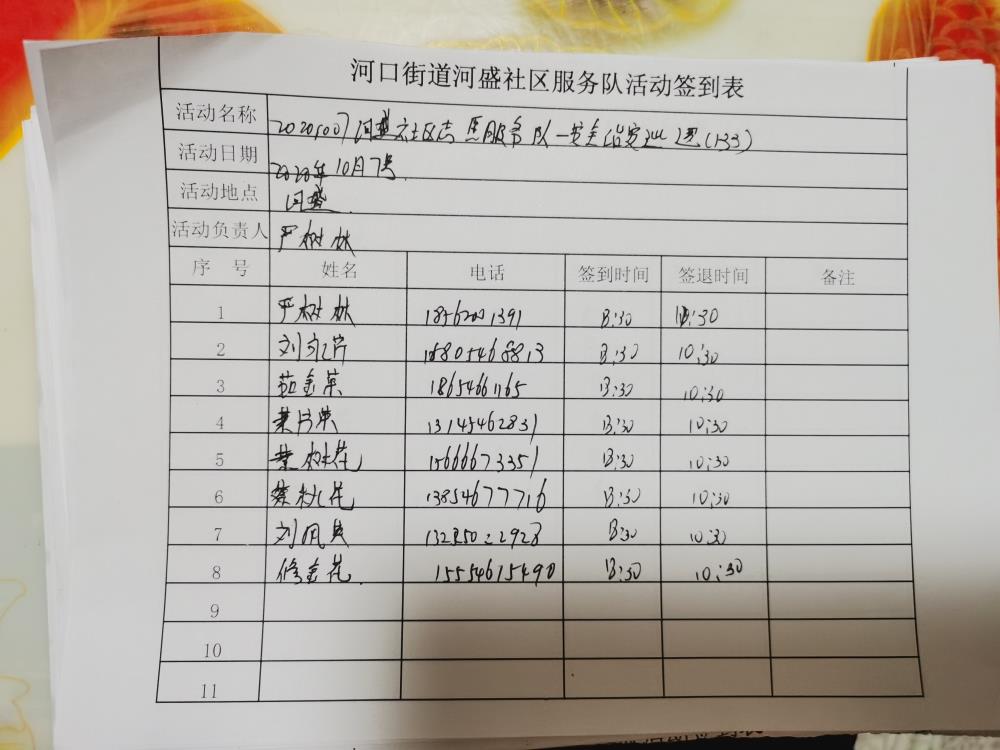 河口街道河盛社区服务队活动签到表
活动名称 20201007河盛社区志愿服务队—安全治安巡逻(133)
活动日期 2020年10月7号.
活动地点 河盛.
活动负责人 严树林
序 号 姓名 电话 签到时间 签退时间 备注
1 严树林 8:30 10:30
2 刘 8:30 10:30
3 8:30 10:30
4 13145462831 8:30 10:30
5 15666673351 8:30 10:30
6 13854677716 8:30 10:30
7 刘凤英 8:30 10:30
8 修金花. 15554615490 8:30 10:30
9
10
11